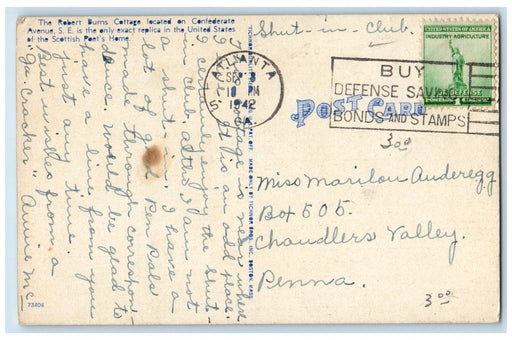 The Robert Burns Cottage located on Confederate
Avenue, S. E. is the only exact replica in the United States
of the Scottish Poet's Home.
Shut-in-Club.
ATLANTA
SEP
10 PM
1942
BUY
DEFENSE SAVINGS
BONDS AND STAMPS
UNITED STATES OF AMERICA
INDUSTRY AGRICULTURE
FOR DEFENSE
POST CARD
Miss Marilou Anderegg
Box 505.
Chandlers Valley.
Penna.
3 00
3 00
This cottage is near where
I live. It is an odd place.
I certainly enjoy the Shut-
in Club, altho I am not
a shut-in. I have a
lot of good Pen Pals
made through correspon-
dence. Would be glad to
have a line from you
just any time.
Best wishes from a
"Ga. Cracker" Annie Mc
73406